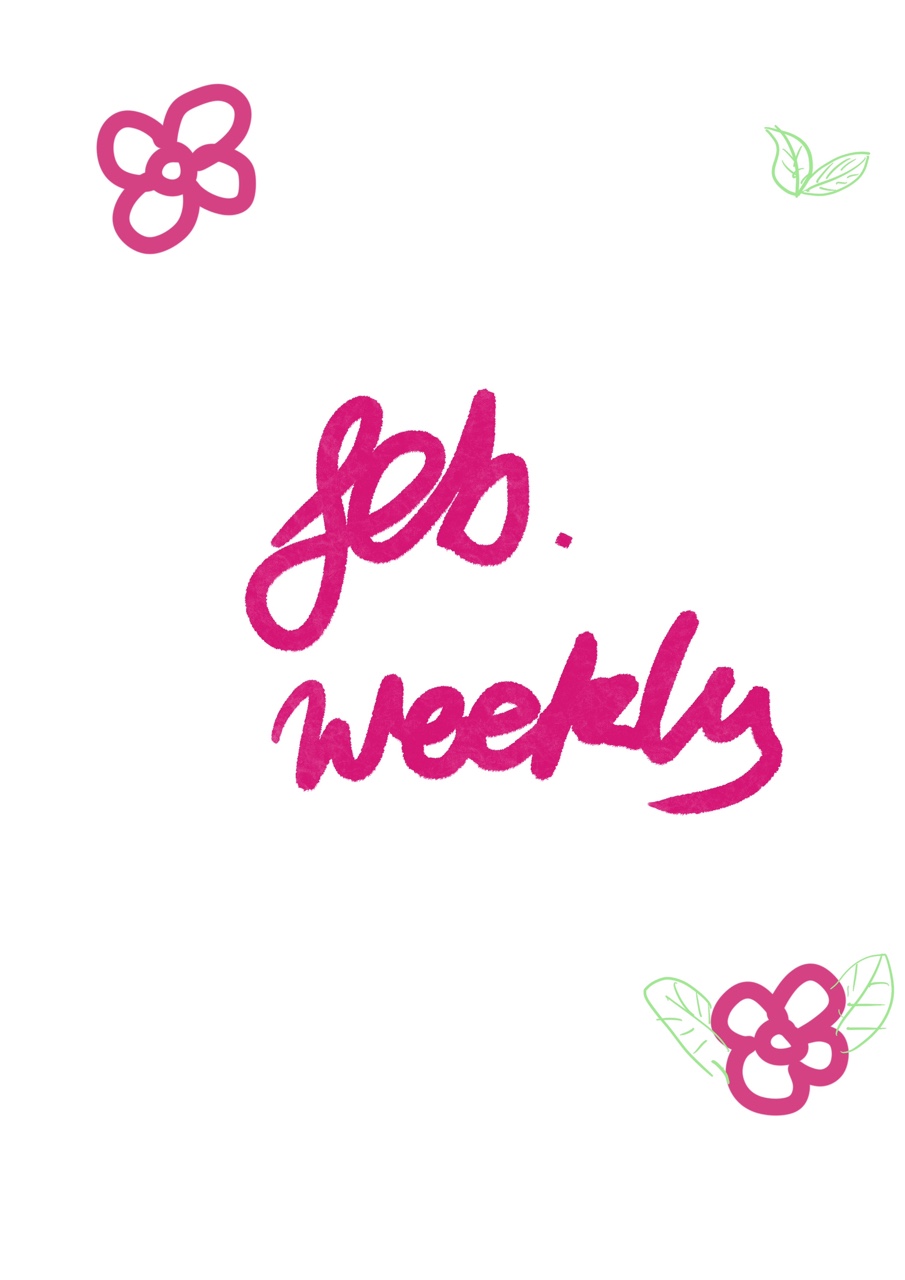 feb.
weekly